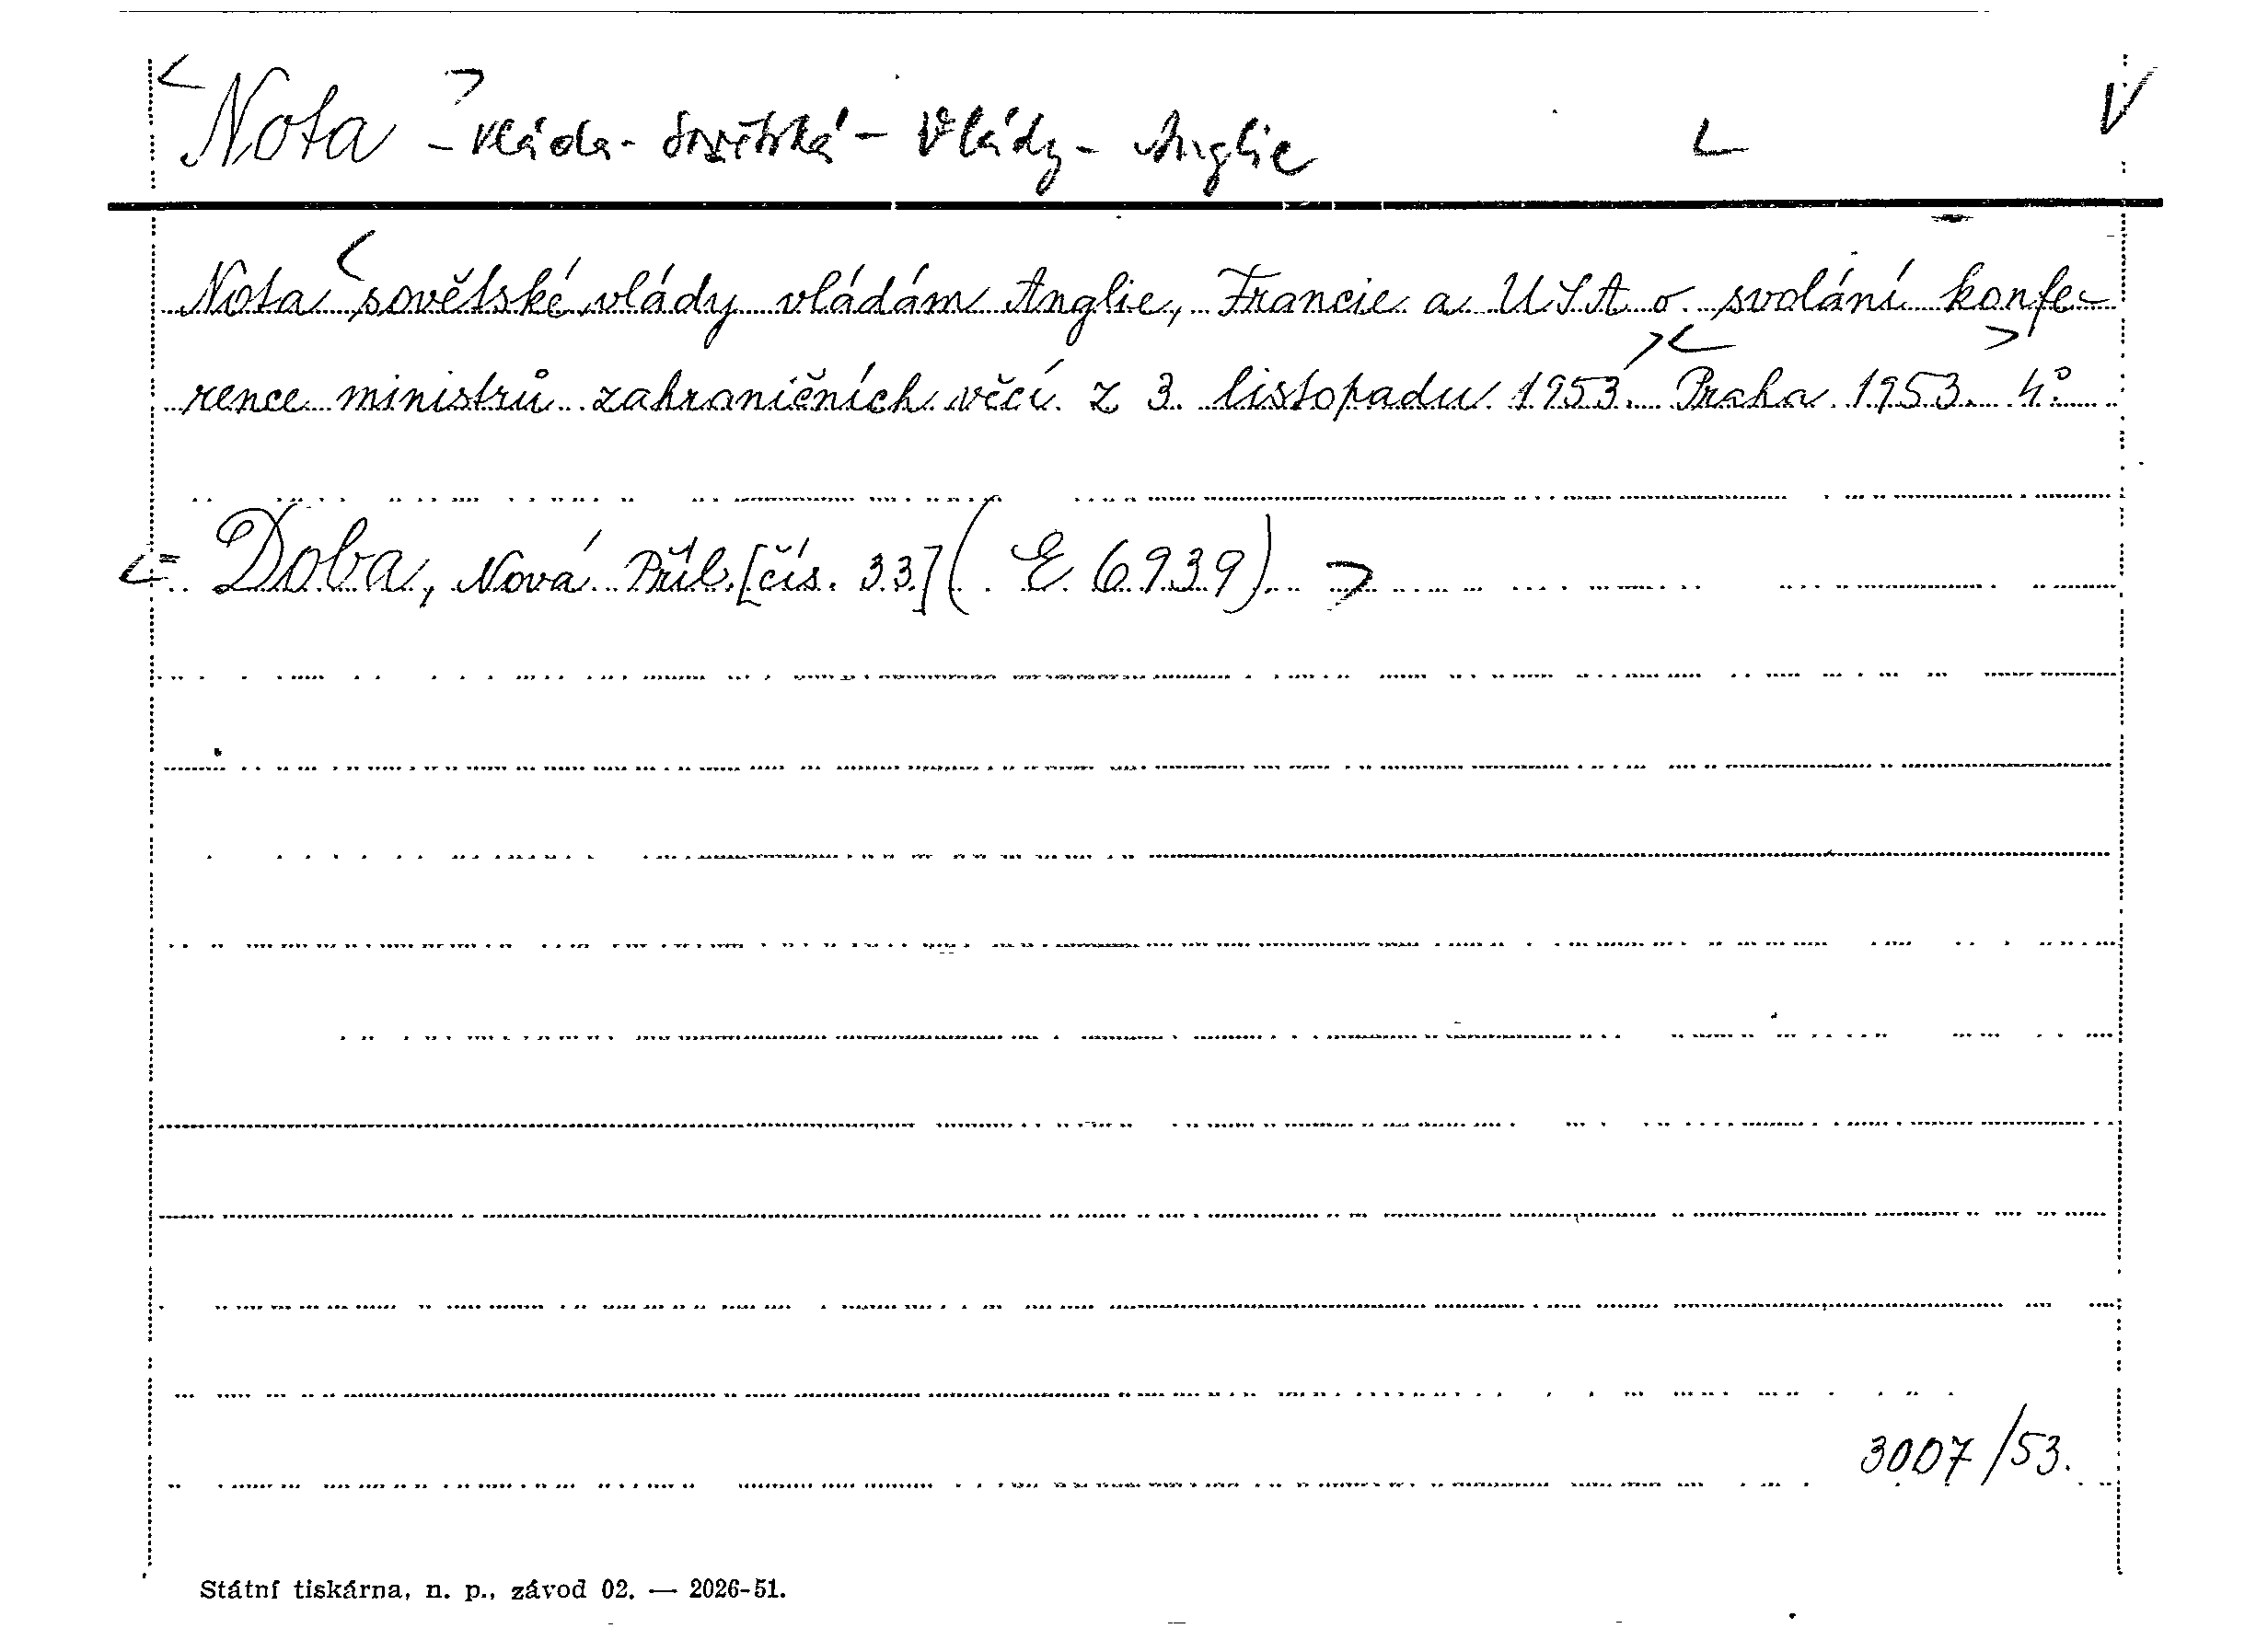 Nota - vláda - Sovětská - Vlády - Anglie
Nota sovětské vlády vládám Anglie, Francie a USA o svolání konfe-
rence ministrů zahraničních věcí z 3. listopadu 1953. Praha 1953. 4°
= Doba, Nová Příl. [čís. 33] ( E 6939)
3007/53.
Státní tiskárna, n. p., závod 02. — 2026-51.